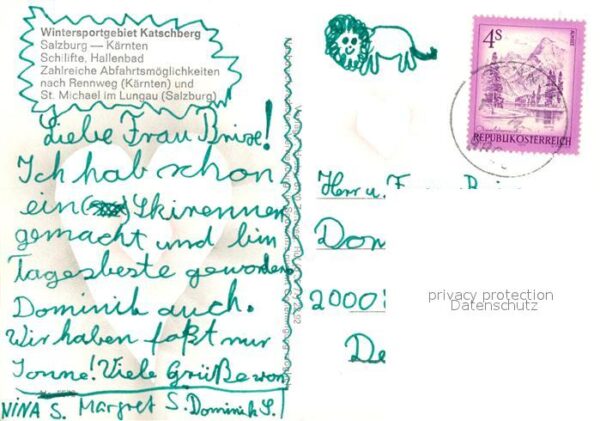 Wintersportgebiet Katschberg
Salzburg — Kärnten
Schilifte, Hallenbad
Zahlreiche Abfahrtsmöglichkeiten
nach Rennweg (Kärnten) und
St. Michael im Lungau (Salzburg)
Liebe Frau Brise!
Ich hab schon
ein Skirennen
gemacht und bin
Tagesbeste geworden
Dominik auch.
Wir haben faßt nur
Sonne! Viele Grüße von
NINA S. Margret S. Dominik S.
4S
REPUBLIK ÖSTERREICH
Herr u.
Don
2000
De
privacy protection
Datenschutz